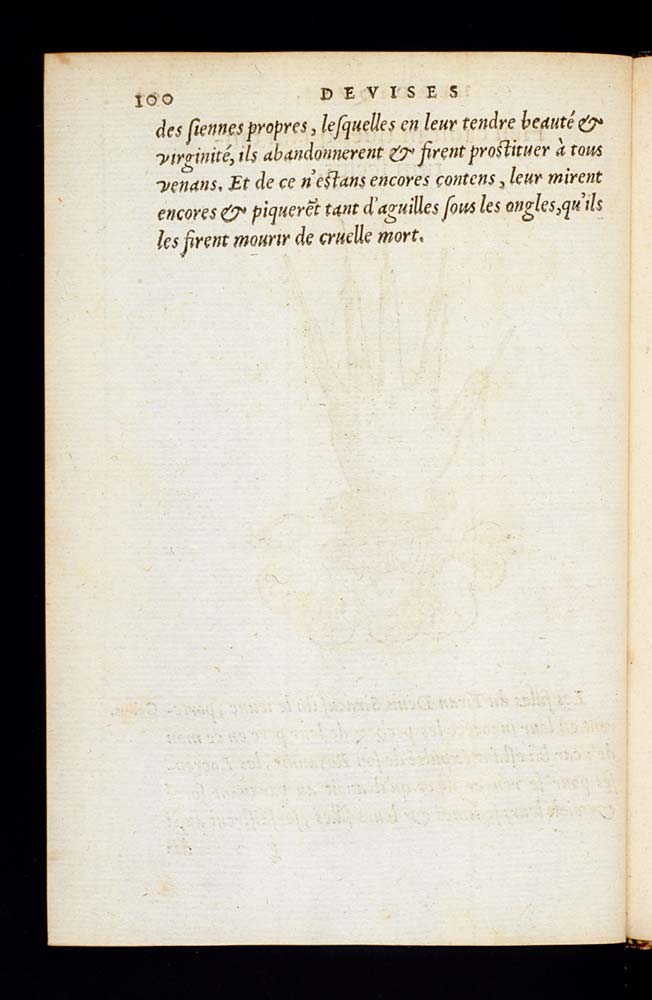 100 DEVISES
des ſiennes propres, leſquelles en leur tendre beauté &
virginité, ils abandonnerent & firent prostituer à tous
venans. Et de ce n'estans encores contens, leur mirent
encores & piquerẽt tant d'aguilles ſous les ongles, qu'ils
les firent mourir de cruelle mort.